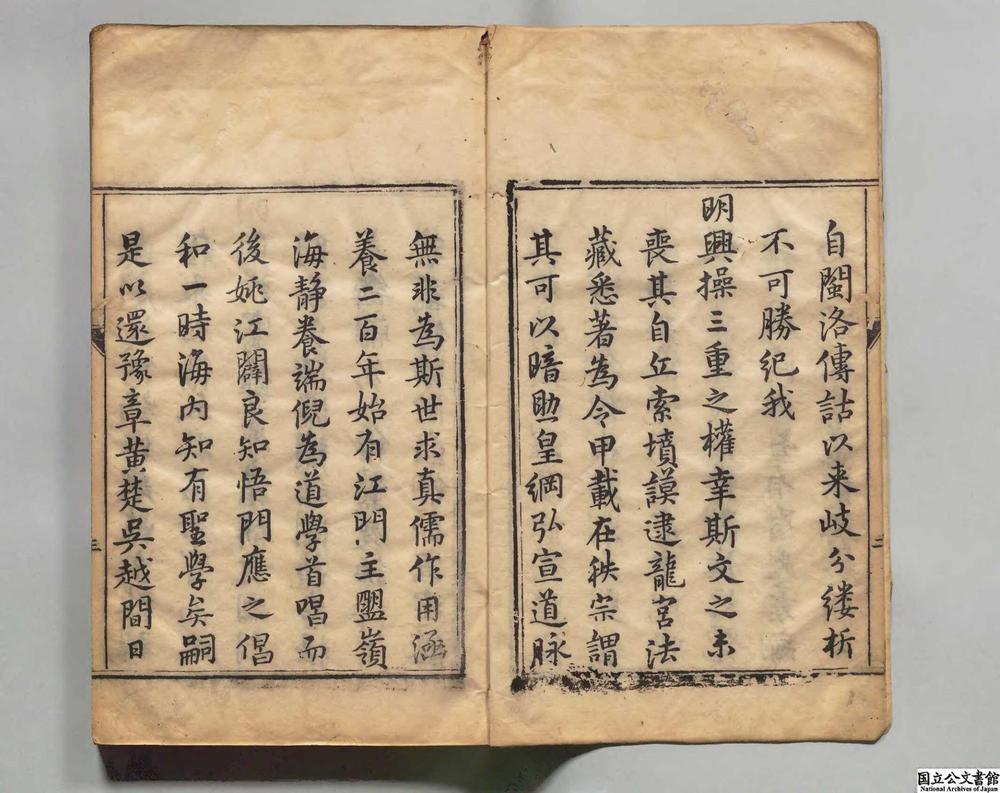 自閩洛傳詁以来岐分縷析
不可勝紀我
明興操三重之權幸斯文之未
喪其自丘索墳謨逮龍宮法
藏悉著為令甲載在秩宗謂
其可以暗助皇綱弘宣道脉
二
無非為斯世求真儒作用涵
養二百年始有江門主盟嶺
海静養端倪為道學首唱而
後姚江闢良知悟門應之倡
和一時海内知有聖學矣嗣
是以還豫章黄楚吳越間日
三
国立公文書館
National Archives of Japan